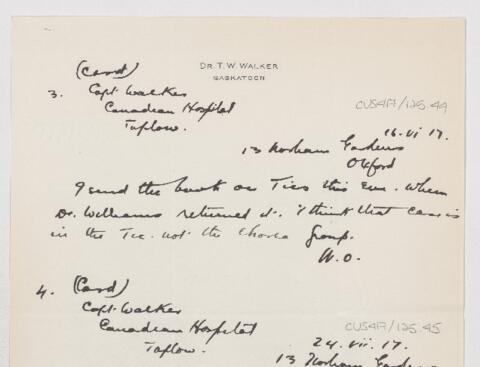 DR. T. W. WALKER
SASKATOON
(Card)
3. Capt. Walker
Canadian Hospital
Taplow.
CUS417/125.44
16.vi 17.
13 Norham Gardens
Oxford
I send the book on Tics this Eve. When
Dr. Williams returned it. I think that case is
in the Tic. not the Chorea group.
W.O.
4. (Card)
Capt. Walker
Canadian Hospital
Taplow.
CUS417/125.45
24. vii. 17.
13 Norham Gardens